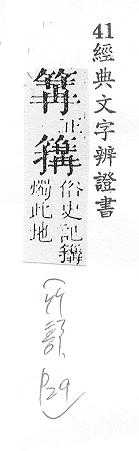 41 經典文字辨證書
篝正
篝俗史記篝
燭此地
(竹部
P29)